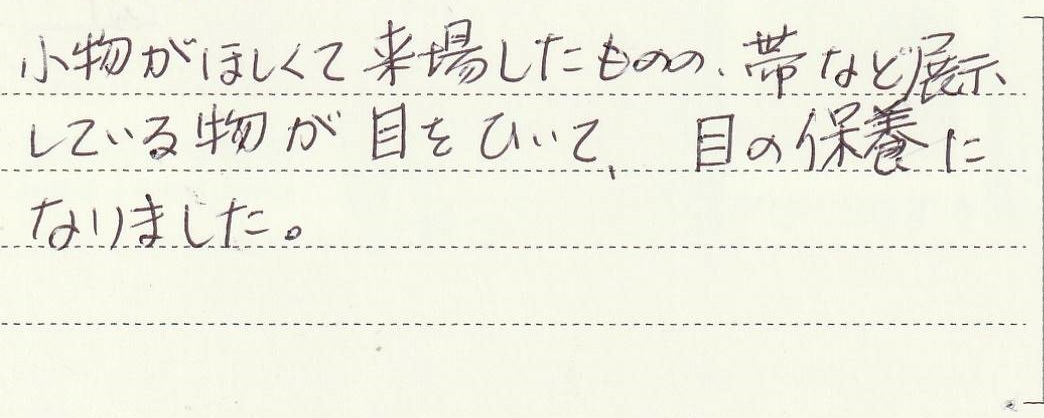 小物がほしくて来場したものの、帯など展示
している物が目をひいて、目の保養に
なりました。